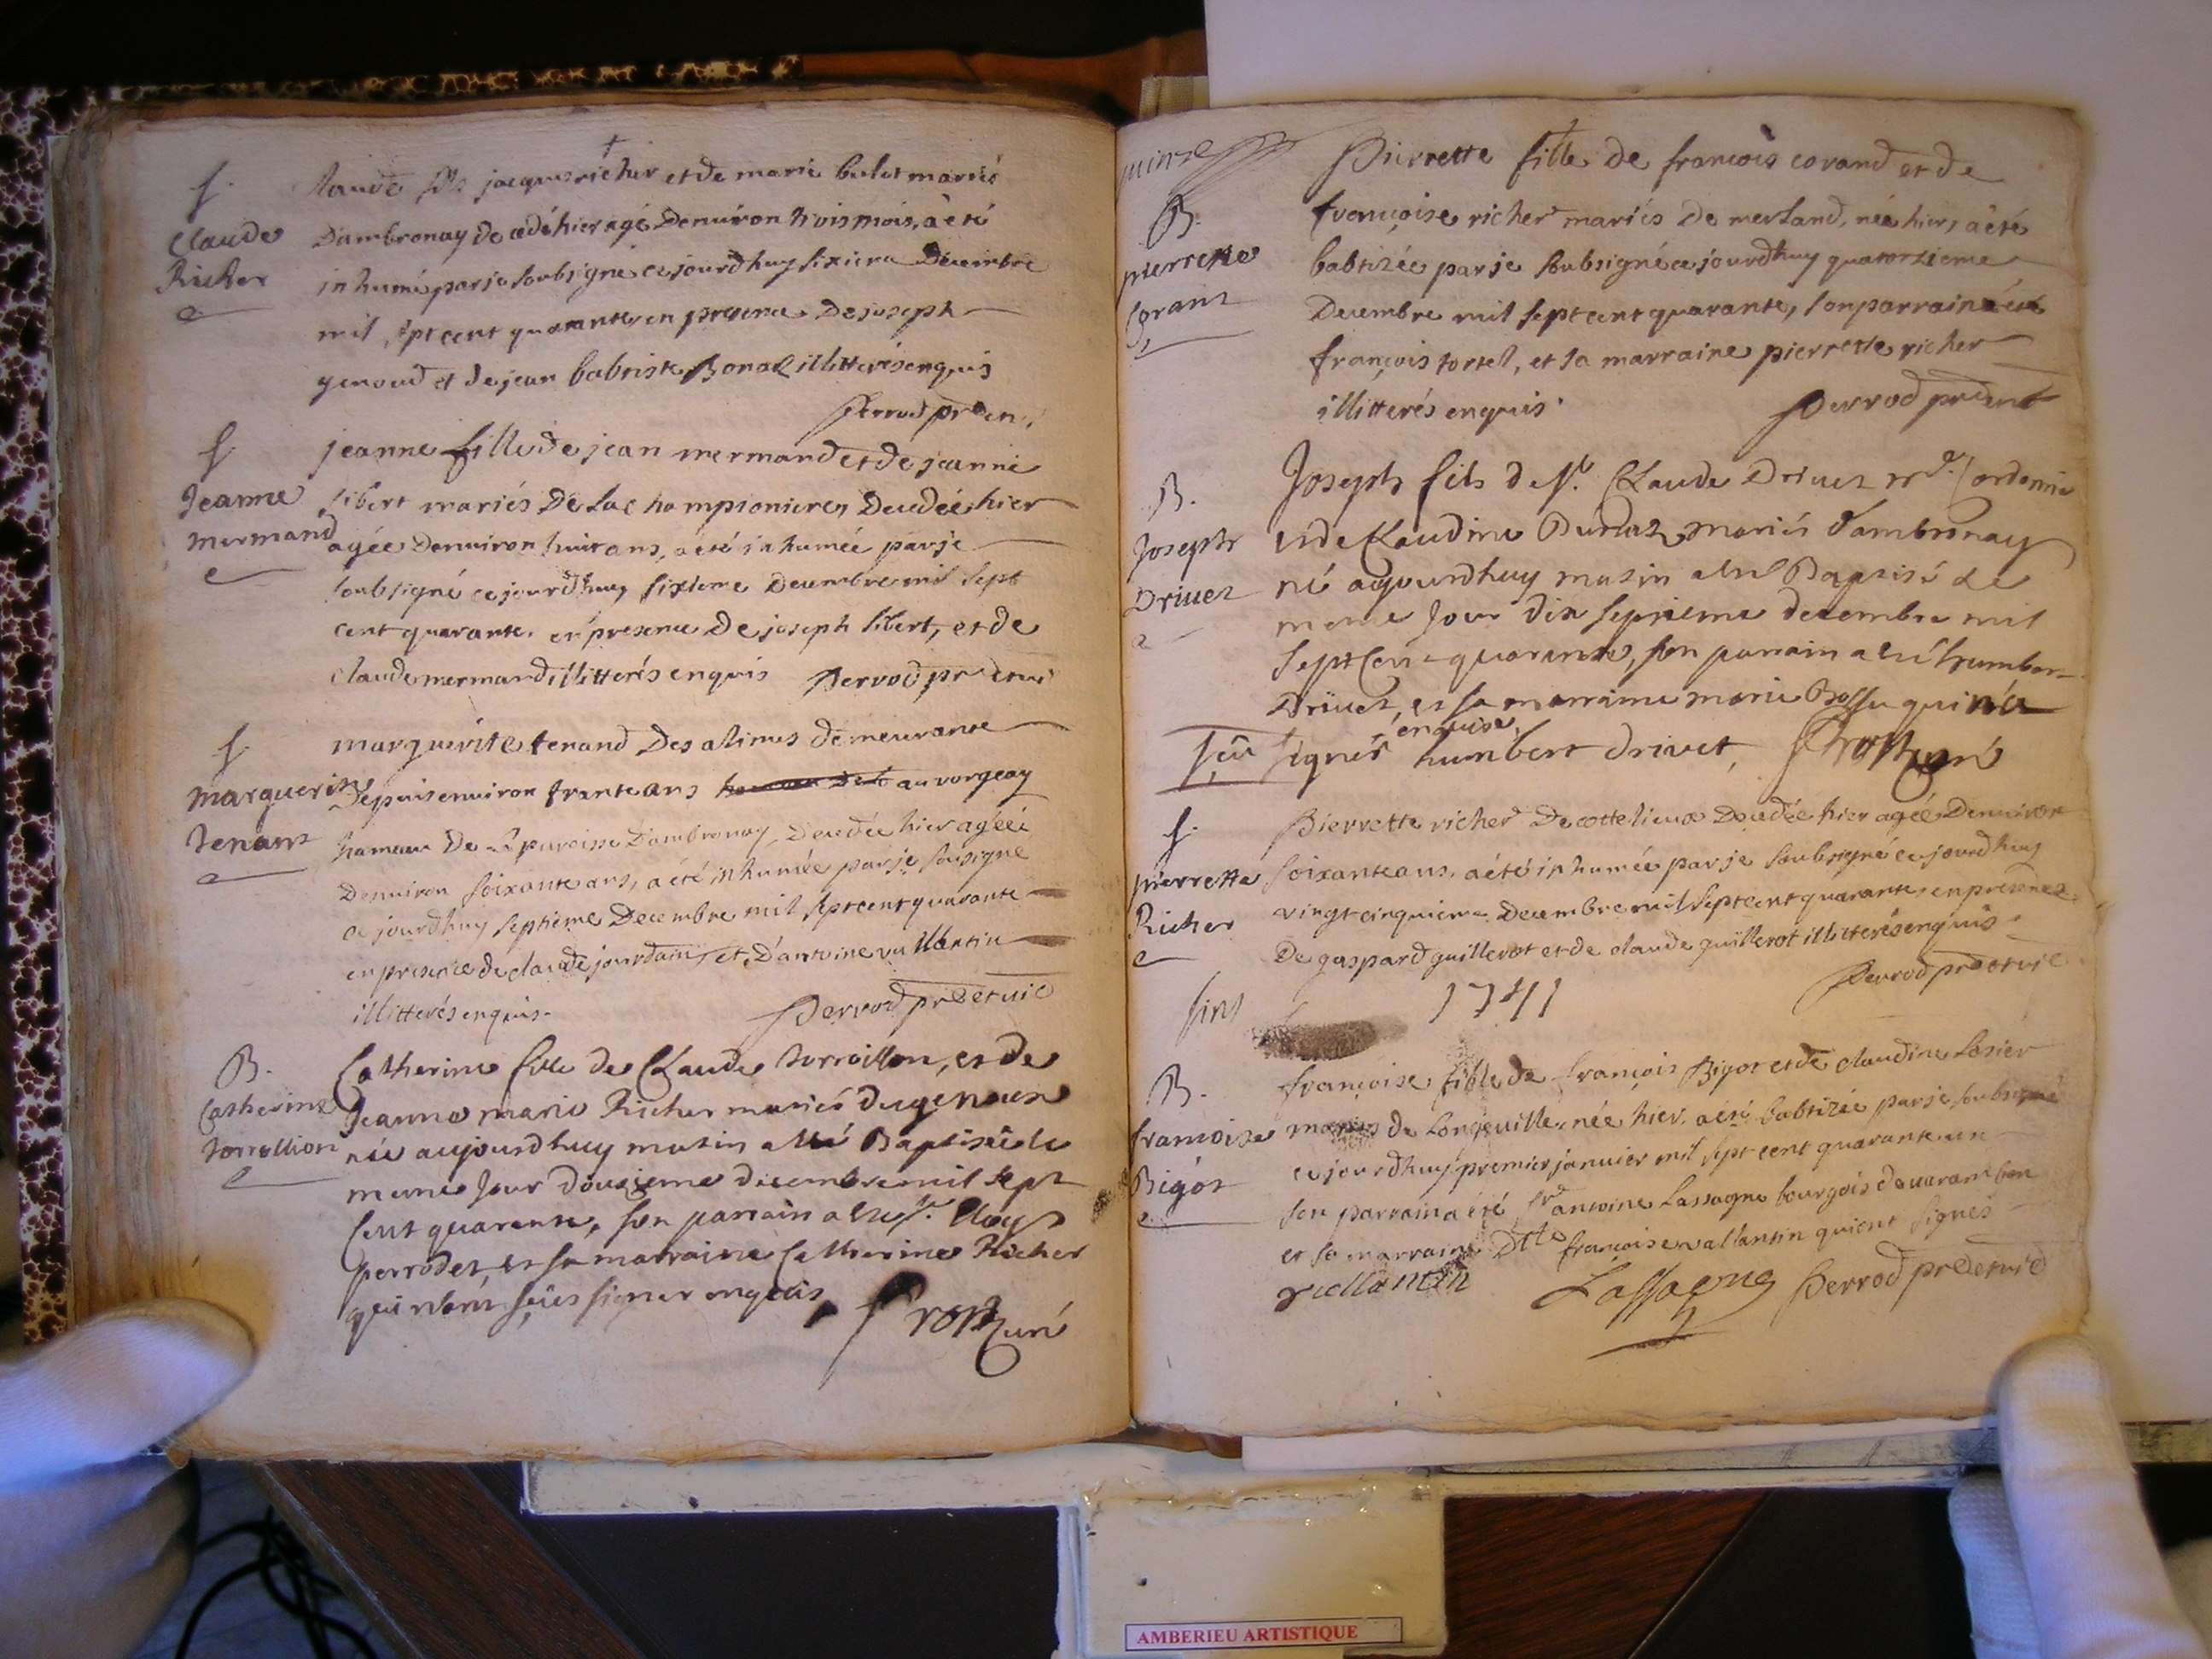 f.
Claude
Richer
Claude fils jacques richer et de marie bulet mariés
D'ambronay decedé hier agé Denuiron trois mois, a été
inhumé par je soubsigné ce jourdhuy sixieme Decembre
mil sept cent quarante, en presence De joseph
genoud et de jean babtiste Bonaz illitterés enquis
Perrod pr
f.
Jeanne
Mermand
jeanne fille de jean mermand et de jeanne
libert mariés De la championiere, Decedée hier
agée Denuiron huit ans, a été inhumée par je
soubsigné ce jourdhuy sixieme Decembre mil sept
cent quarante. en presence De joseph libert, et de
claude mermand illitterés enquis Perrod pr
f.
marguerite
tenant
marguerite tenand Des alimes demeurante
Depuis enuiron trante ans au vorgeay
hameau De la paroisse D'ambronay, Decedée hier agéé
Denuiron soixante ans, a été inhumée par je sousigné
ce jourdhuy septieme Decembre mil sept cent quarante
en presence de claude jourdain, et D'antoine vallantin
illitterés enquis. Perrod pr et vic
B.
Catherine
torrellion
Catherine fille de Claude torroillon, et de
Jeanne marie Richer mariés du genoux
née aujourdhuy matin a été Baptisée le
meme Jour douzieme decembre mil sept
Cent quarante, son parrain a été sr. Eloy
perrodet, et sa marraine Catherine Richer
qui n'ont sçeu signer enquis, Frost curé
quinze
B.
pierrette
Corant
Pierrette fille de francois corand et de
françoise richer mariés de merland, née hier, a été
babtizée par je soubsigné ce jourdhuy quatorzieme
Decembre mil sept cent quarante, son parrain a été
françois tortel, et sa marraine pierrette richer
illitterés enquis. Perrod
B.
Joseph
Driuet
Joseph fils de sr. Claude Driuet md. Cordonnie
et de Claudine Dunaz mariés d'ambronay
né aujourdhuy matin a été Baptisé le
meme Jour dix septieme decembre mil
sept Cent quarante, son parrain a été humber
Driuet, et sa marraine marie Bossu qui n'a
sçeu signer enquise, humbert drivet, Frost curé
f.
pierrette
Richer
Pierrette richer De cottelieux Decedée hier agée Denuiron
soixante ans, a été inhumée par je soubsigné ce jourdhuy
vingt cinquieme Decembre mil sept cent quarante, en presence
De gaspard guillerot et de claude guillerot illitterés enquis.
Perrod pr et vic
fin
1741
B.
françoise
Bigot
françoise fille de françois Bigot et de claudine Losier
mariés de Longeuille, née hier, a été babtizée par je soubsigné
ce jourdhuy premier januier mil sept cent quarante un
son parrain a été sr. antoine Lassagne bourgois de uarambon
et sa marraine Dlle françoise vallantin qui ont signés
vallantin Lassagne Perrod pr et vic
AMBERIEU ARTISTIQUE